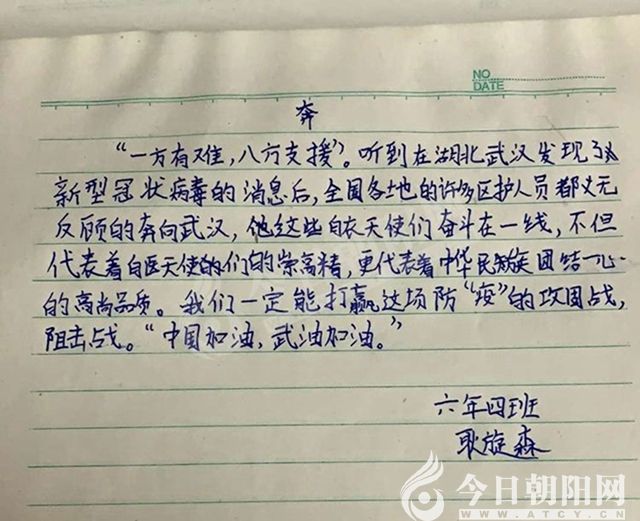 NO
DATE
奔
“一方有难，八方支援”。听到在湖北武汉发现了
新型冠状病毒的消息后，全国各地的许多区护人员都义无
反顾的奔向武汉，他这些白衣天使们奋斗在一线，不但
代表着白医天使的们的崇高精，更代表着中华民族团结一心
的高尚品质。我们一定能打赢这场防“疫”的攻固战，
阻击战。“中国加油，武油加油。”
六年四班
耿旋森
今日朝阳网
WWW.ATCY.CN